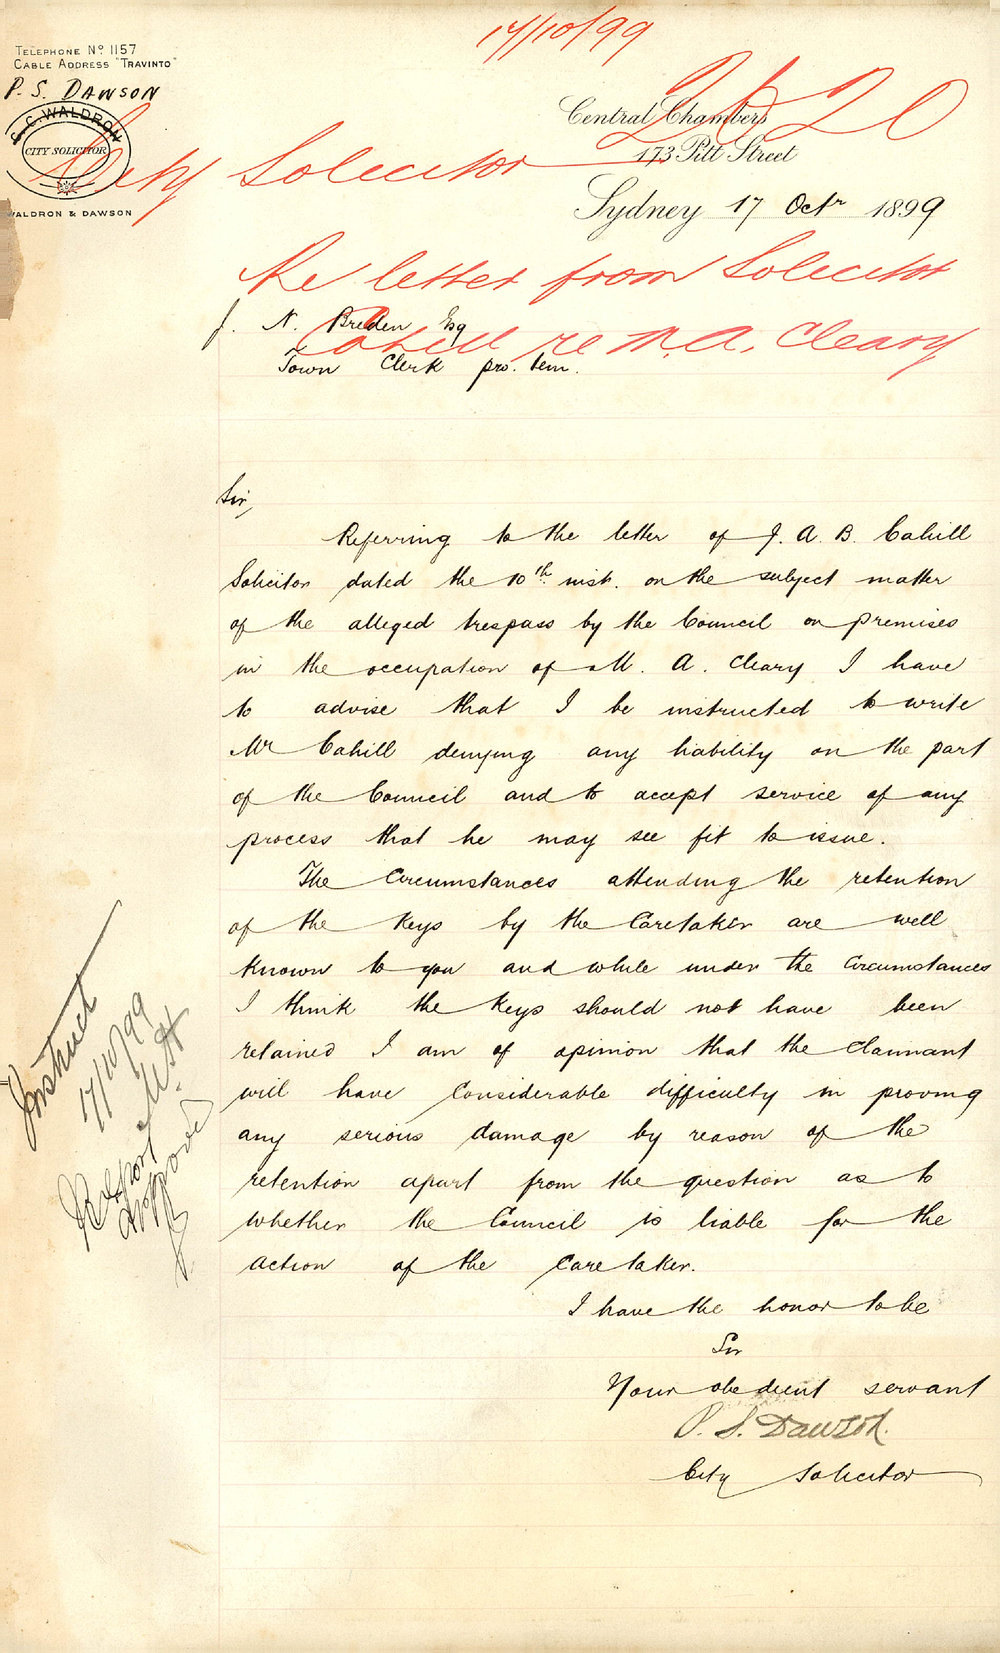 17/10/99
TELEPHONE No 1157
CABLE ADDRESS "TRAVINTO"
P. S. DAWSON
G. C. WALDRON
CITY SOLICITOR
WALDRON & DAWSON
Central Chambers
173 Pitt Street
2620
City Solicitor
Sydney 17 Octr 1899
Re letter from Solicitor
Cahill re M. A. Cleary
J. N. Breden Esq
Town Clerk pro. tem.
Sir,
Referring to the letter of J. A. B. Cahill
Solicitor dated the 10th inst. on the subject matter
of the alleged trespass by the Council on premises
in the occupation of M. A. Cleary I have
to advise that I be instructed to write
Mr Cahill denying any liability on the part
of the Council and to accept service of any
process that he may see fit to issue.
The Circumstances attending the retention
of the Keys by the Caretaker are well
known to you and while under the Circumstances
I think the Keys should not have been
retained I am of opinion that the Claimant
will have Considerable difficulty in proving
any serious damage by reason of the
retention apart from the question as to
whether the Council is liable for the
action of the Caretaker.
I have the honor to be
Sir
Your obedient servant
P. S. Dawson.
City Solicitor
Instruct
17/10/99
Report
approved